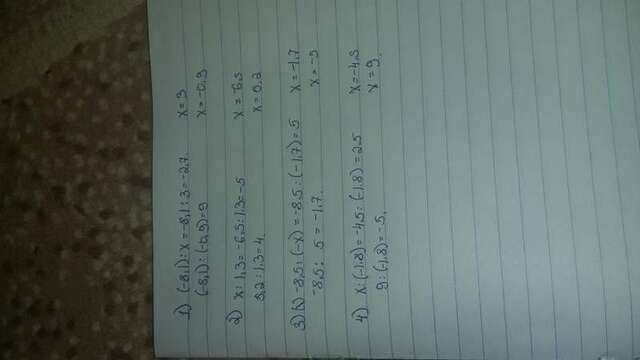 1) (-8,1) : x = -8,1 : 3 = -2,7. x = 3
(-8,1) : (-0,9) = 9 x = -0,9
2) x : 1,3 = -6,5 : 1,3 = -5 x = -6,5
5,2 : 1,3 = 4. x = 5,2
3) -8,5 : (-x) = -8,5 : (-1,7) = 5 x = -1,7
-8,5 : 5 = -1,7. x = -5
4) x : (-1,8) = -4,5 : (-1,8) = 2,5 x = -4,5
9 : (-1,8) = -5. x = 9.